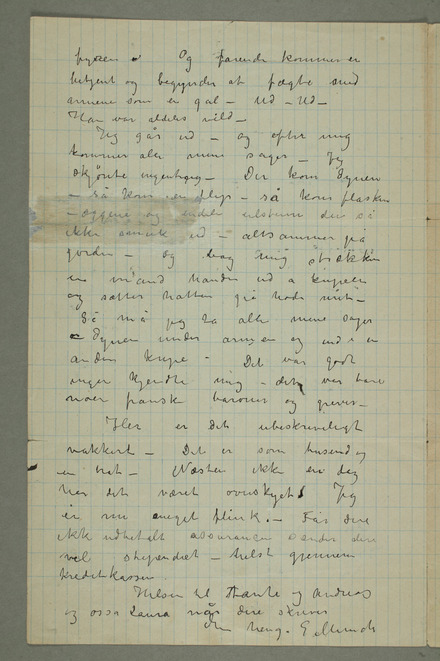 Og farende kommer en
betjent og begynder at fægte med
armene som en gal – Ud – Ud –
Han var aldeles vild –
Jeg går ud – og efter mig
kommer alle mine sager – Jeg
skjönte ingenting – Der kom dynen
– så kom en slips – så kom flasken
– æggene og
ikke ud – altsammen på
jorden – og bag mig
en mand hånden ud a kupeen
og sætter hatten på hode mit –
Så må jeg ta alle mine sager
– Dynen under armen og ind i en
anden kupe – Det var godt
ingen kjendte mig – det var bare
noen fransk baroner og grever –
Her er det ubeskriveligt
vakkert – Det er som tusend og
en nat – Næsten ikke en dag
har det været overskyet. Jeg
er nu meget flink. – Får dere
ikke udbetalt assurancen sender dere
vel stipendiet – helst gjennem
Kreditkassen
Hilsen til Tante og Andreas
og ossa Laura når dere skriver
E Munch